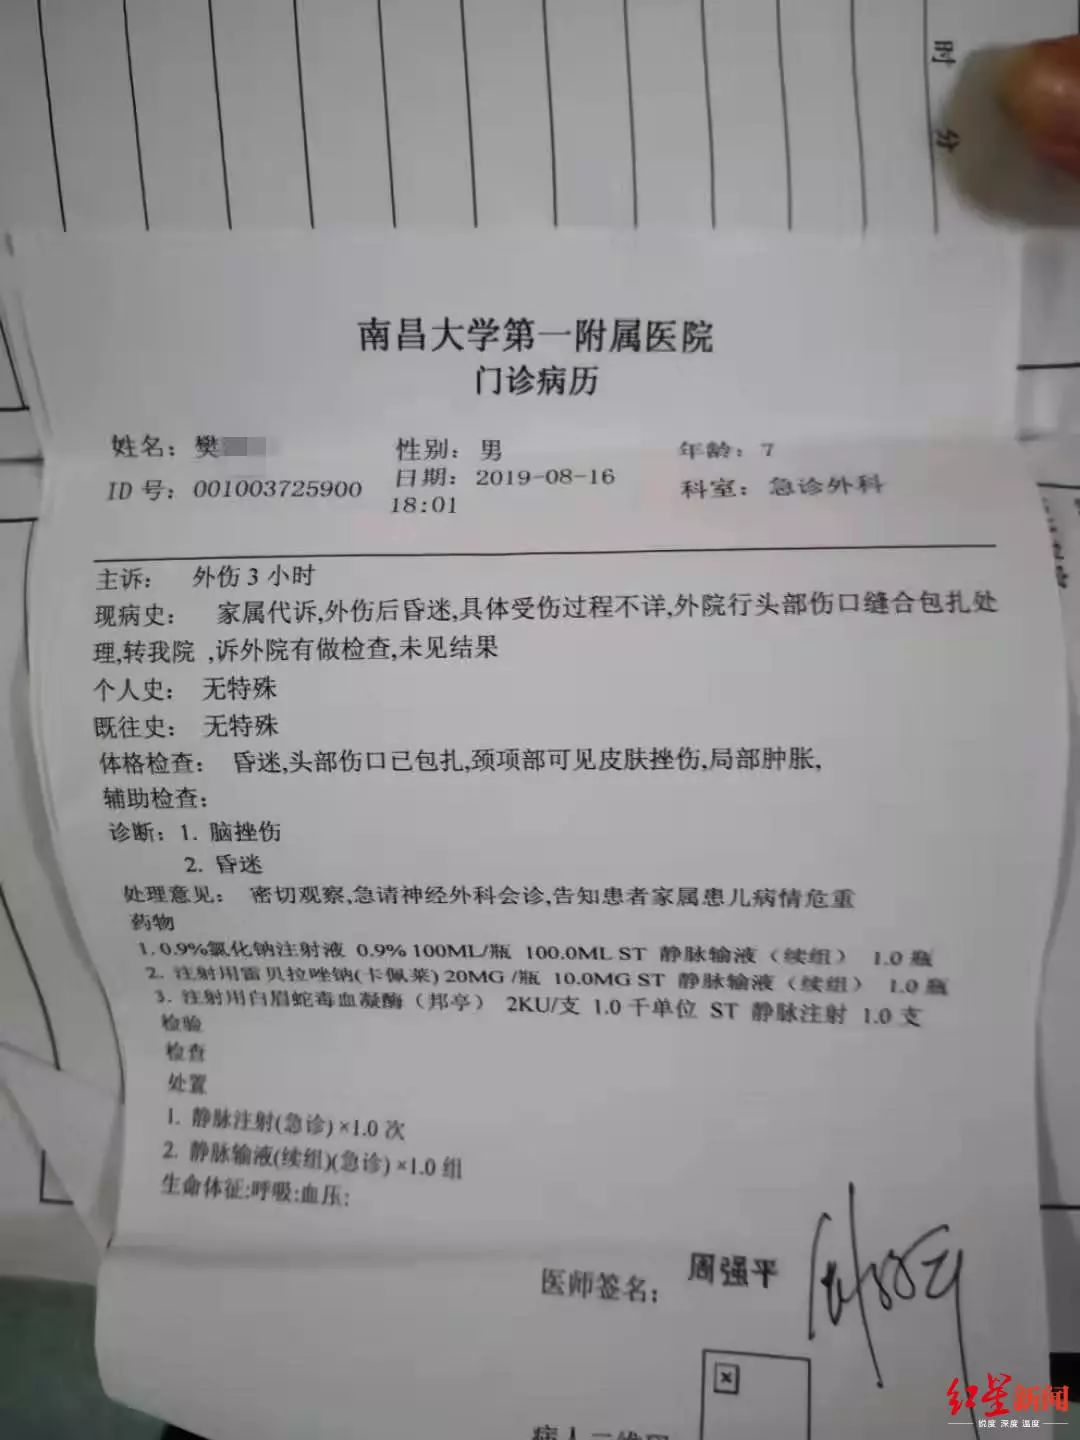 时
分
南昌大学第一附属医院
门诊病历
姓名: 樊 性别: 男 年龄: 7
ID 号: 001003725900 日期: 2019-08-16 科室: 急诊外科
18:01
主诉: 外伤 3 小时
现病史: 家属代诉,外伤后昏迷,具体受伤过程不详,外院行头部伤口缝合包扎处
理,转我院 ,诉外院有做检查,未见结果
个人史: 无特殊
既往史: 无特殊
体格检查: 昏迷,头部伤口已包扎,颈项部可见皮肤挫伤,局部肿胀,
辅助检查:
诊断: 1. 脑挫伤
2. 昏迷
处理意见: 密切观察,急请神经外科会诊,告知患者家属患儿病情危重
药物
1. 0.9%氯化钠注射液 0.9% 100ML/瓶 100.0ML ST 静脉输液（续组） 1.0 瓶
2. 注射用雷贝拉唑钠(卡佩莱) 20MG /瓶 10.0MG ST 静脉输液（续组） 1.0 瓶
3. 注射用白眉蛇毒血凝酶（邦亭） 2KU/支 1.0 千单位 ST 静脉注射 1.0 支
检验
检查
处置
1. 静脉注射(急诊) ×1.0 次
2. 静脉输液(续组)(急诊) ×1.0 组
生命体征:呼吸:血压:
医师签名: 周强平
病人二维码
红星新闻
锐度 深度 温度